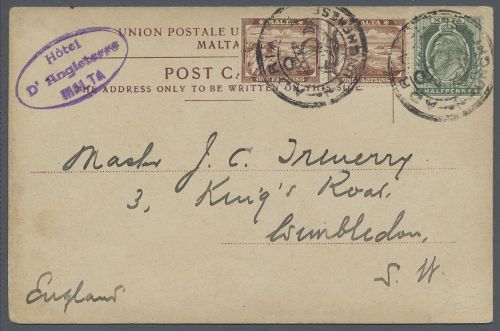 UNION POSTALE U
MALTA
MALTA
MALTA
ONE FARTHING
ONE FARTHING
HALFPENNY
POST CA
THE ADDRESS ONLY TO BE WRITTEN ON THIS SIDE.
Hôtel
D' Angleterre
MALTA
Master J. C. Trenerry
3, King's Road,
Wimbledon,
S. W.
England